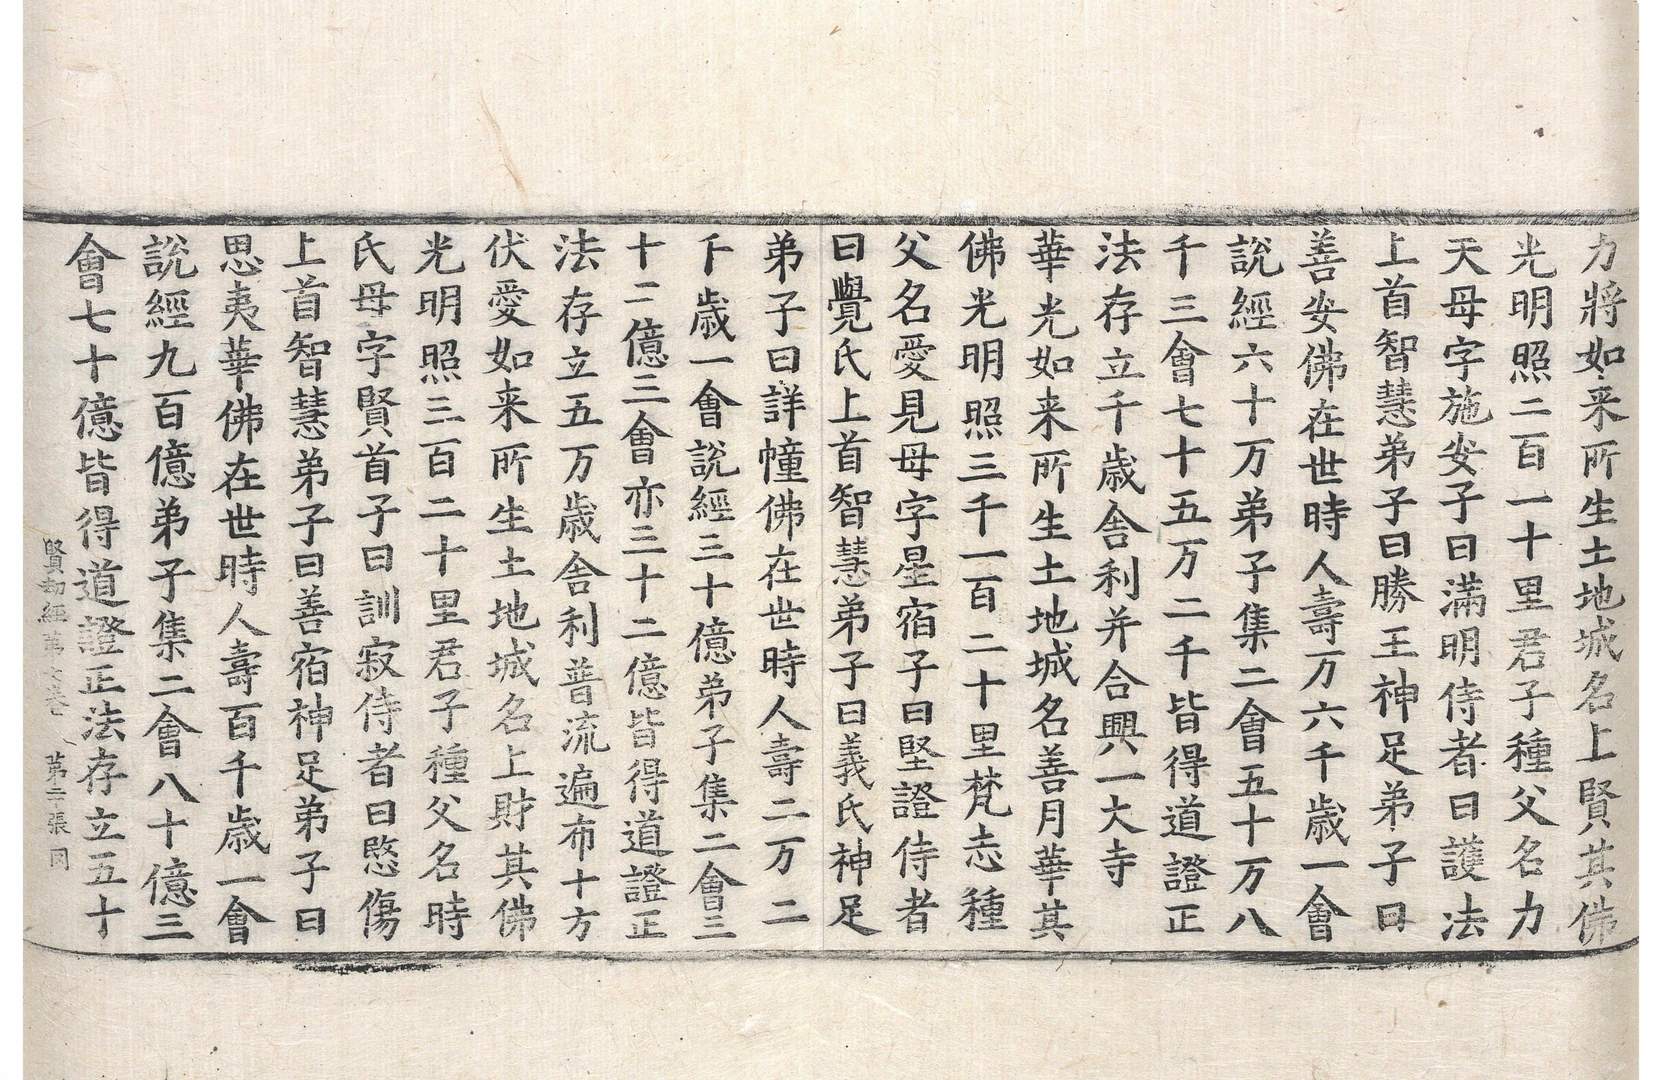 力將如来所生土地城名上賢其佛
光明照二百一十里君子種父名力
天母字施安子曰滿明侍者曰護法
上首智慧弟子曰勝王神足弟子曰
善安佛在世時人壽万六千歲一會
說經六十万弟子集二會五十万八
千三會七十五万二千皆得道證正
法存立千歲舍利并合興一大寺
華光如来所生土地城名善月華其
佛光明照三千一百二十里梵志種
父名愛見母字星宿子曰堅證侍者
曰覺氏上首智慧弟子曰義氏神足
弟子曰詳幢佛在世時人壽二万二
千歲一會說經三十億弟子集二會三
十二億三會亦三十二億皆得道證正
法存立五万歲舍利普流遍布十方
伏愛如来所生土地城名上財其佛
光明照三百二十里君子種父名時
氏母字賢首子曰訓寂侍者曰愍傷
上首智慧弟子曰善宿神足弟子曰
思夷華佛在世時人壽百千歲一會
說經九百億弟子集二會八十億三
會七十億皆得道證正法存立五十
賢劫經第卷 第二張 同